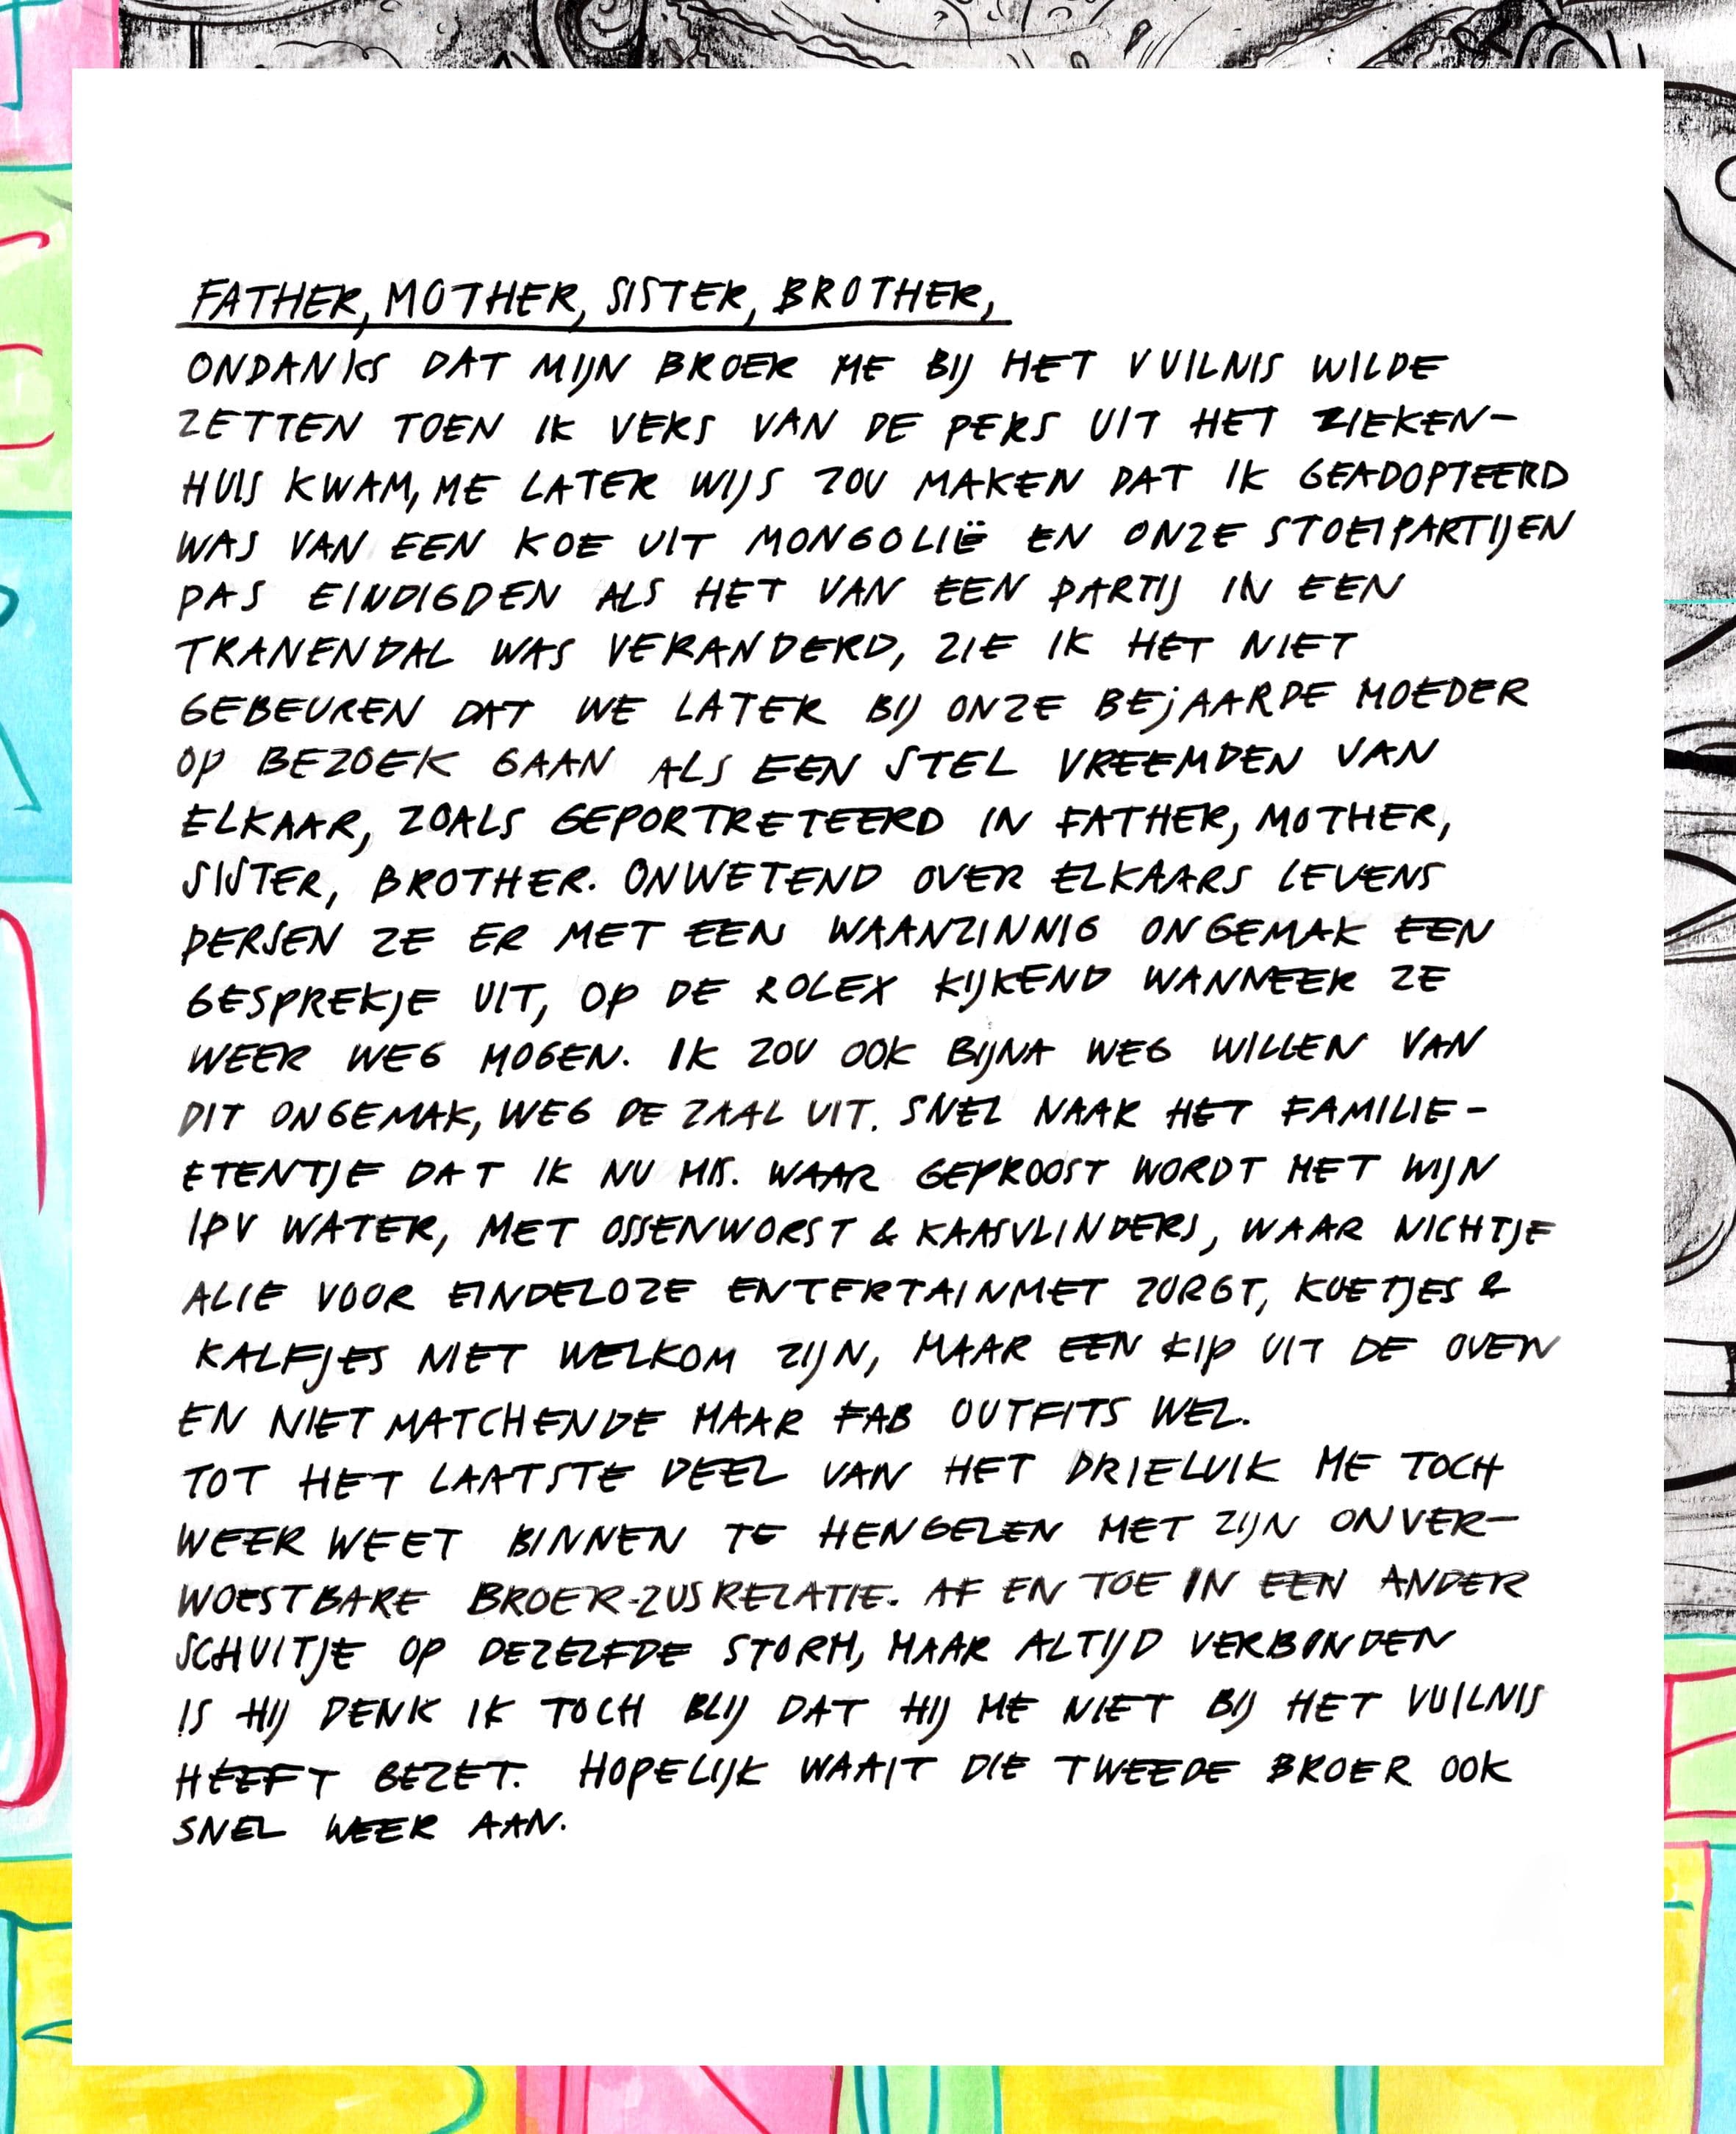 FATHER, MOTHER, SISTER, BROTHER,
ONDANKS DAT MIJN BROER ME BIJ HET VUILNIS WILDE
ZETTEN TOEN IK VERS VAN DE PERS UIT HET ZIEKEN-
HUIS KWAM, ME LATER WIJS ZOU MAKEN DAT IK GEADOPTEERD
WAS VAN EEN KOE UIT MONGOLIË EN ONZE STOEIPARTIJEN
PAS EINDIGDEN ALS HET VAN EEN PARTIJ IN EEN
TRANENDAL WAS VERANDERD, ZIE IK HET NIET
GEBEUREN DAT WE LATER BIJ ONZE BEJAARDE MOEDER
OP BEZOEK GAAN ALS EEN STEL VREEMDEN VAN
ELKAAR, ZOALS GEPORTRETEERD IN FATHER, MOTHER,
SISTER, BROTHER. ONWETEND OVER ELKAARS LEVENS
PERSEN ZE ER MET EEN WAANZINNIG ONGEMAK EEN
GESPREKJE UIT, OP DE ROLEX KIJKEND WANNEER ZE
WEER WEG MOGEN. IK ZOU OOK BIJNA WEG WILLEN VAN
DIT ONGEMAK, WEG DE ZAAL UIT. SNEL NAAR HET FAMILIE-
ETENTJE DAT IK NU MIS. WAAR GEPROOST WORDT MET WIJN
IPV WATER, MET OSSENWORST & KAASVLINDERS, WAAR NICHTJE
ALIE VOOR EINDELOZE ENTERTAINMET ZORGT, KOETJES &
KALFJES NIET WELKOM ZIJN, MAAR EEN KIP UIT DE OVEN
EN NIET MATCHENDE MAAR FAB OUTFITS WEL.
TOT HET LAATSTE DEEL VAN HET DRIELUIK ME TOCH
WEER WEET BINNEN TE HENGELEN MET ZIJN ONVER-
WOESTBARE BROER-ZUSRELATIE. AF EN TOE IN EEN ANDER
SCHUITJE OP DEZELFDE STORM, MAAR ALTIJD VERBONDEN
IS HIJ DENK IK TOCH BLIJ DAT HIJ ME NIET BIJ HET VUILNIS
HEEFT GEZET. HOPELIJK WAAIT DIE TWEEDE BROER OOK
SNEL WEER AAN.